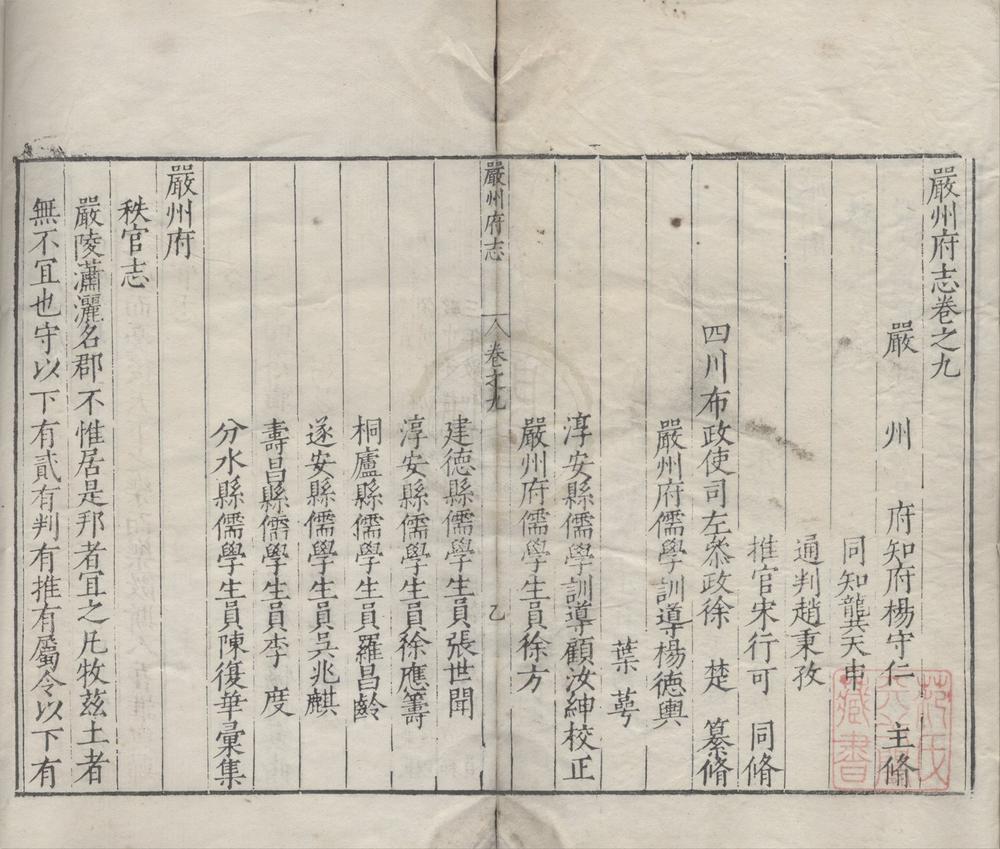 嚴州府志卷之九
嚴州府知府楊守仁主脩
同知龔天申
通判趙秉孜
推官宋行可同脩
四川布政使司左叅政徐楚纂脩
嚴州府儒學訓導楊德輿
葉萼
淳安縣儒學訓導顧汝紳校正
嚴州府儒學生員徐方
嚴州府志
卷之九
乙
建德縣儒學生員張世聞
淳安縣儒學生員徐應簹
桐廬縣儒學生員羅昌齡
遂安縣儒學生員吳兆麒
壽昌縣儒學生員李度
分水縣儒學生員陳復華彙集
嚴州府
秩官志
嚴陵瀟灑名郡不惟居是邦者冝之凡牧兹土者
無不冝也守以下有貳有判有推有屬令以下有
藏書